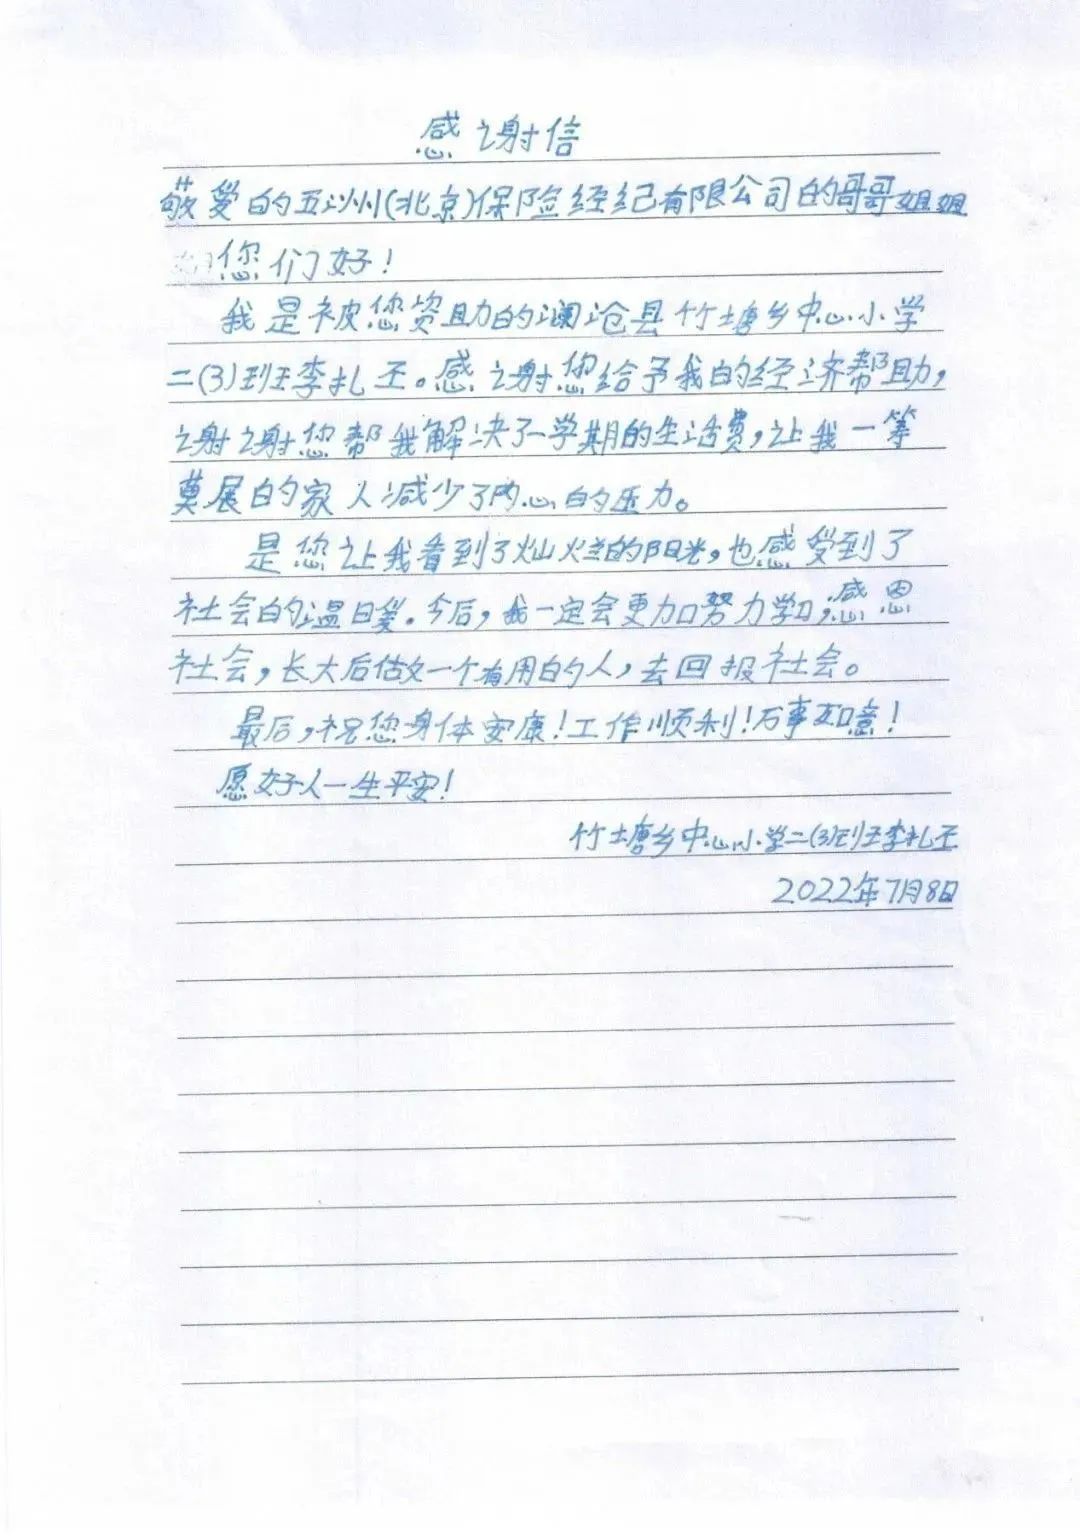 感谢信
敬爱的五洲(北京)保险经纪有限公司的哥哥姐姐
您们好!
我是被您资助的澜沧县竹塘乡中心小学
二(3)班李扎丕。感谢您给予我的经济帮助,
谢谢您帮我解决了一学期的生活费,让我一筹
莫展的家人减少了内心的压力。
是您让我看到了灿烂的阳光,也感受到了
社会的温暖。今后,我一定会更加努力学习,感恩
社会,长大后做一个有用的人,去回报社会。
最后,祝您身体安康!工作顺利!万事如意!
愿好人一生平安!
竹塘乡中心小学二(3)班李扎丕
2022年7月8日